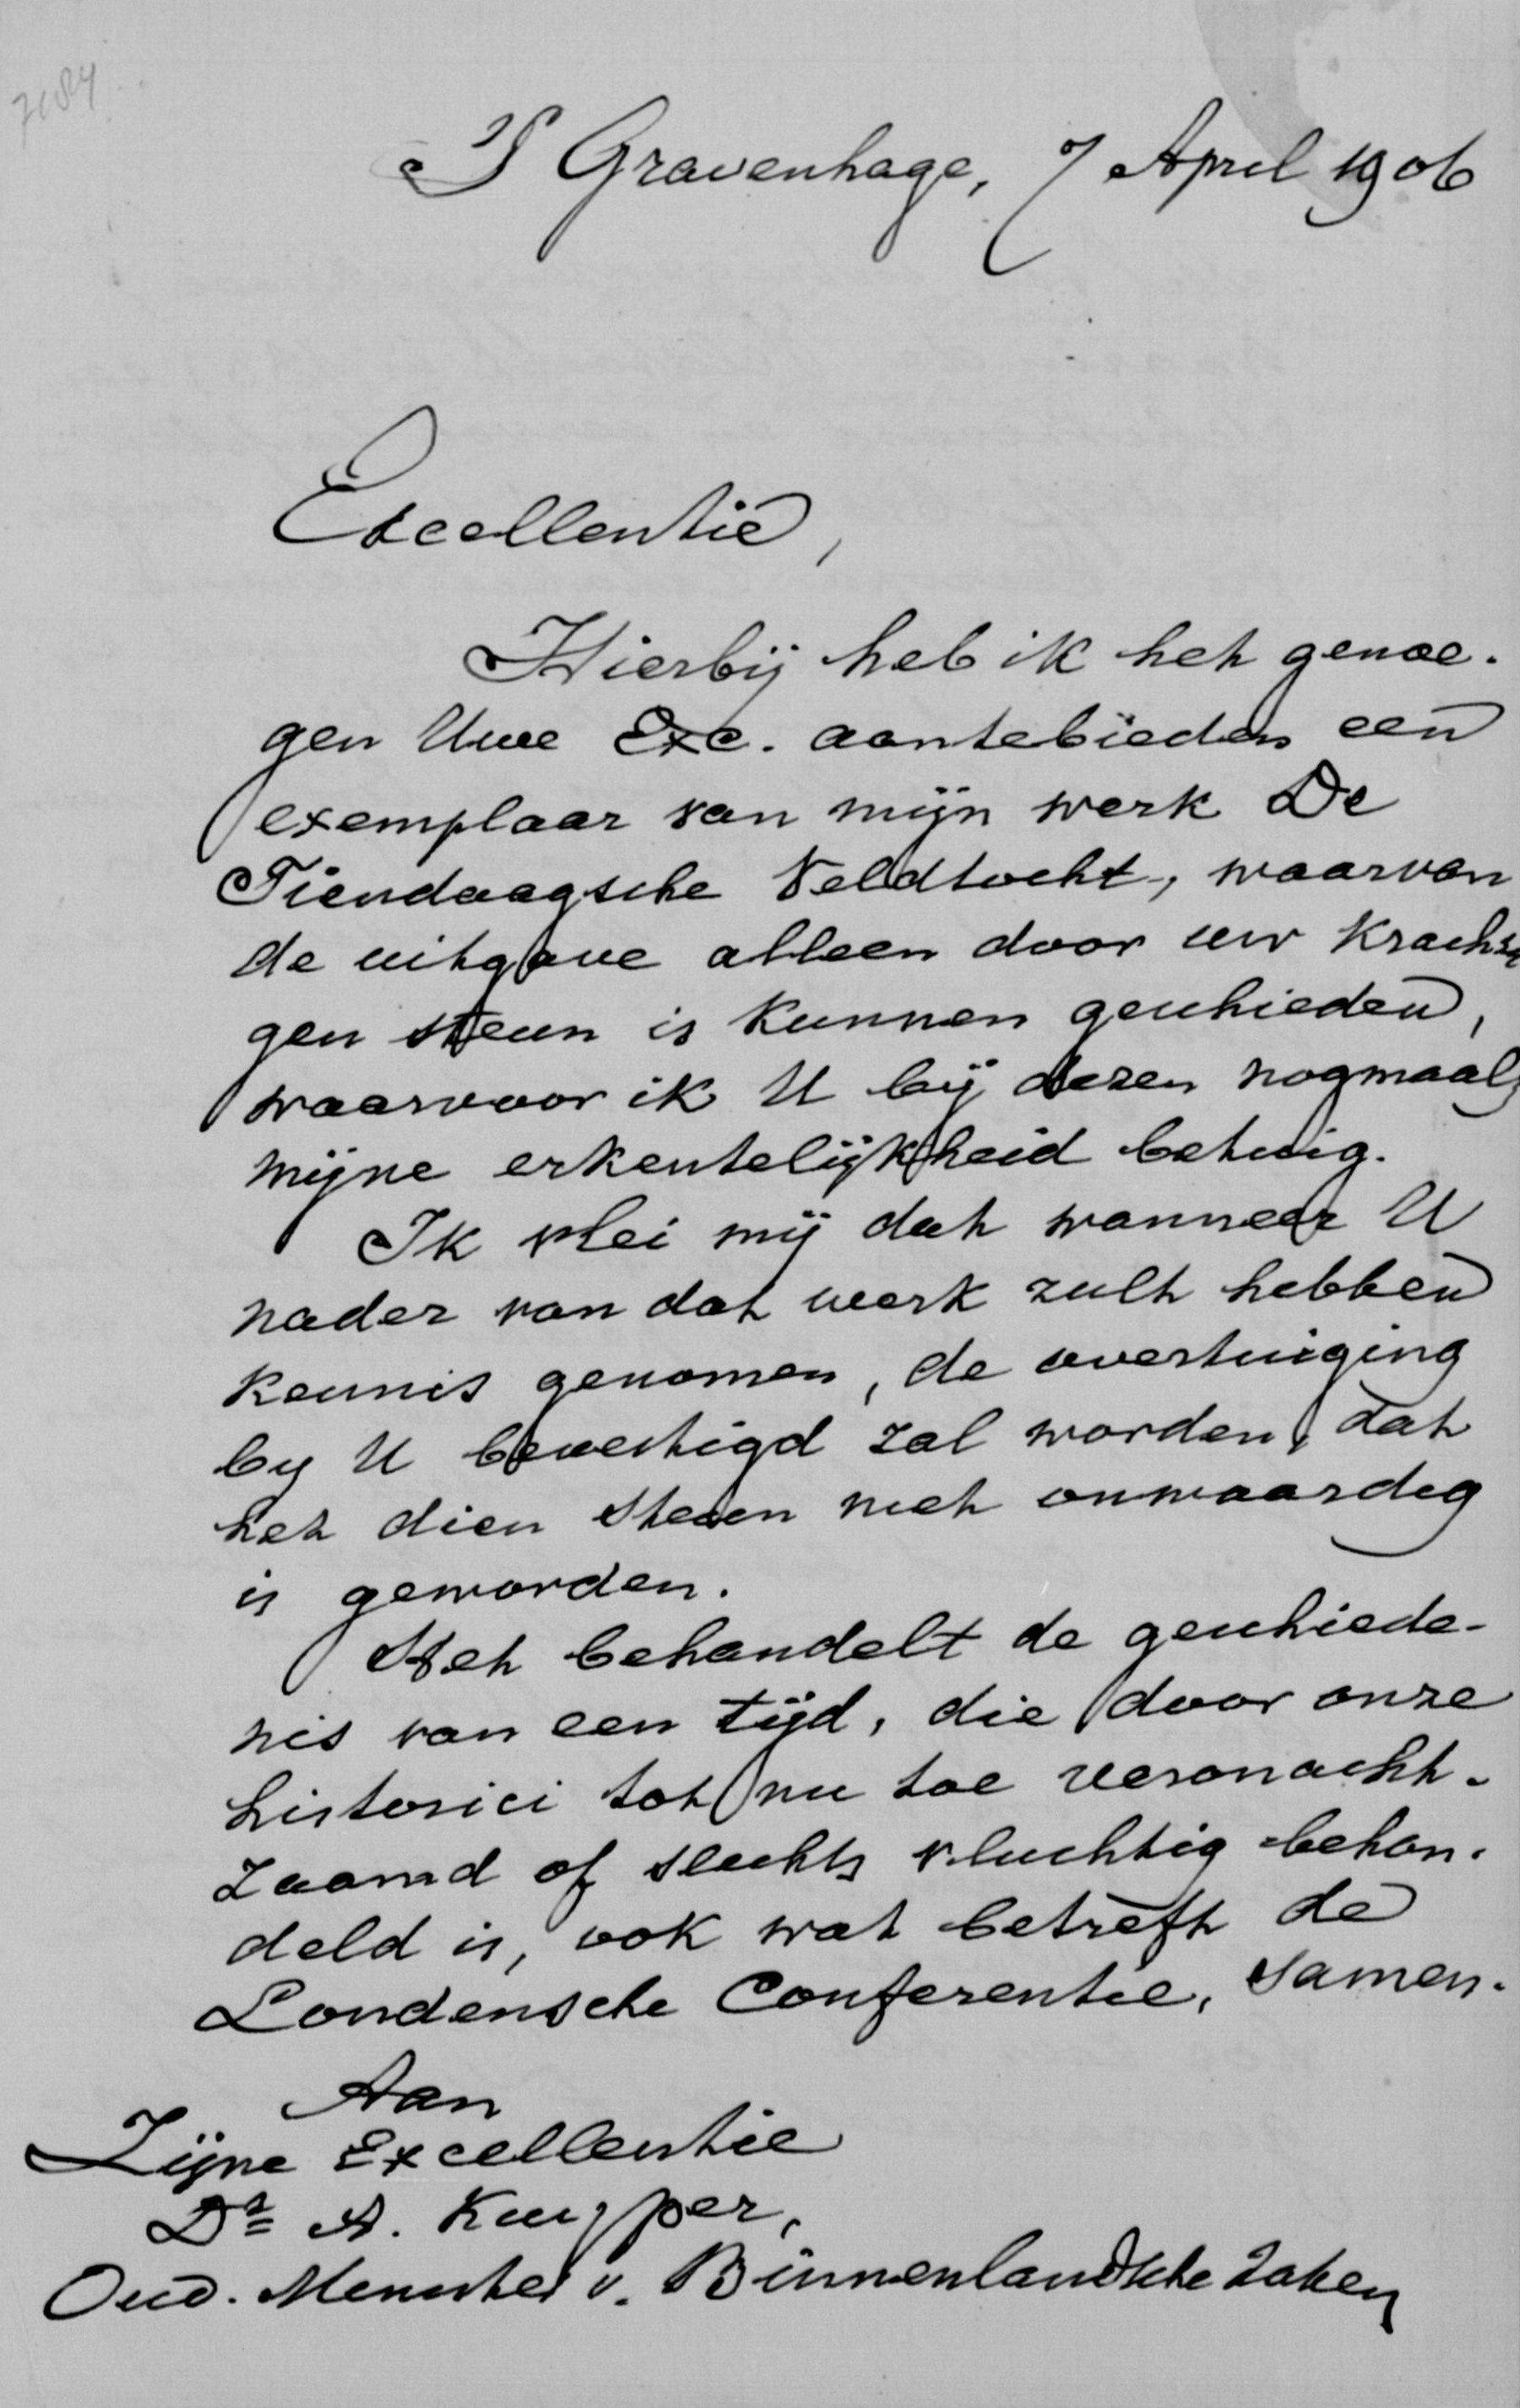 7184
'S Gravenhage, 7 April 1906
Excellentie,
Hierbij heb ik het genoe-
gen Uwe Exc. aantebieden een
exemplaar van mijn werk De
Tiendaagsche Veldtocht, waarvan
de uitgave alleen door uw krachti-
gen steun is kunnen geschieden,
waarvoor ik U bij dezen nogmaals
mijne erkentelijkheid betuig.
Ik vlei mij dat wanneer U
nader van dat werk zult hebben
kennis genomen, de overtuiging
by U bevestigd zal worden, dat
het dien steun niet onwaardig
is geworden.
Het behandelt de geschiede-
nis van een tijd, die door onze
historici tot nu toe veronacht-
zaamd of slechts vluchtig behan-
deld is, ook wat betreft de
Londensche Conferentie, samen-
Aan
Zijne Excellentie
Dr A. Kuyper,
Oud-Minister v. Binnenlandsche Zaken